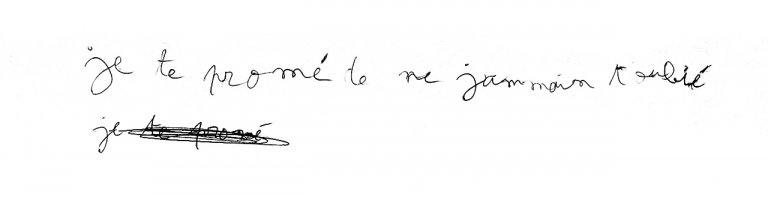 je te promé de ne jammain t oublié
je te promé